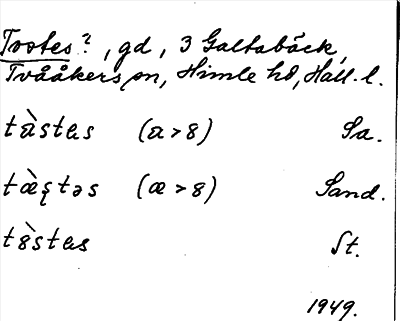 Tostes?, gd, 3 Galtabäck,
Tvååkers sn, Himle hd, Hall. l.
tàstas (a > 8) Sa.
tæ̀stəs (æ > 8) Sand.
t8̀stas St.
1949.